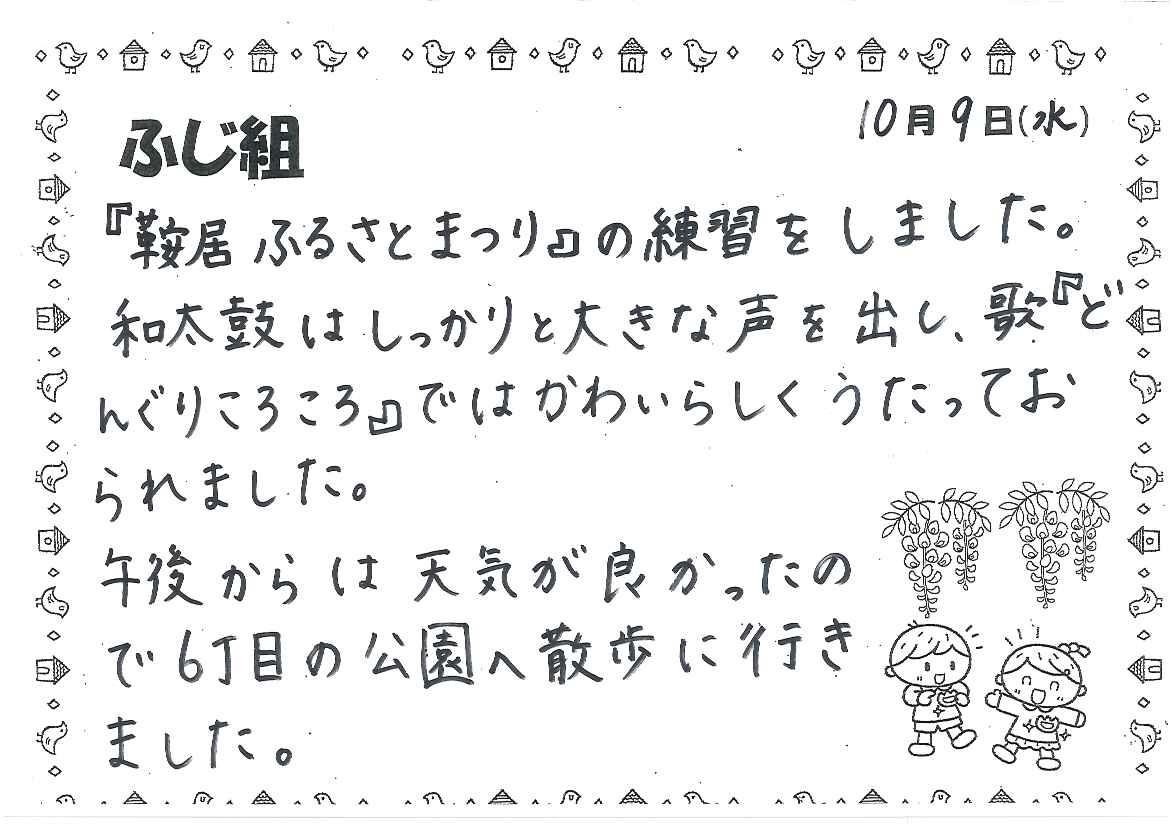 ふじ組
10月9日(水)
『鞍居ふるさとまつり』の練習をしました。
和太鼓はしっかりと大きな声を出し、歌『ど
んぐりころころ』ではかわいらしくうたってお
られました。
午後からは天気が良かったの
で6丁目の公園へ散歩に行き
ました。